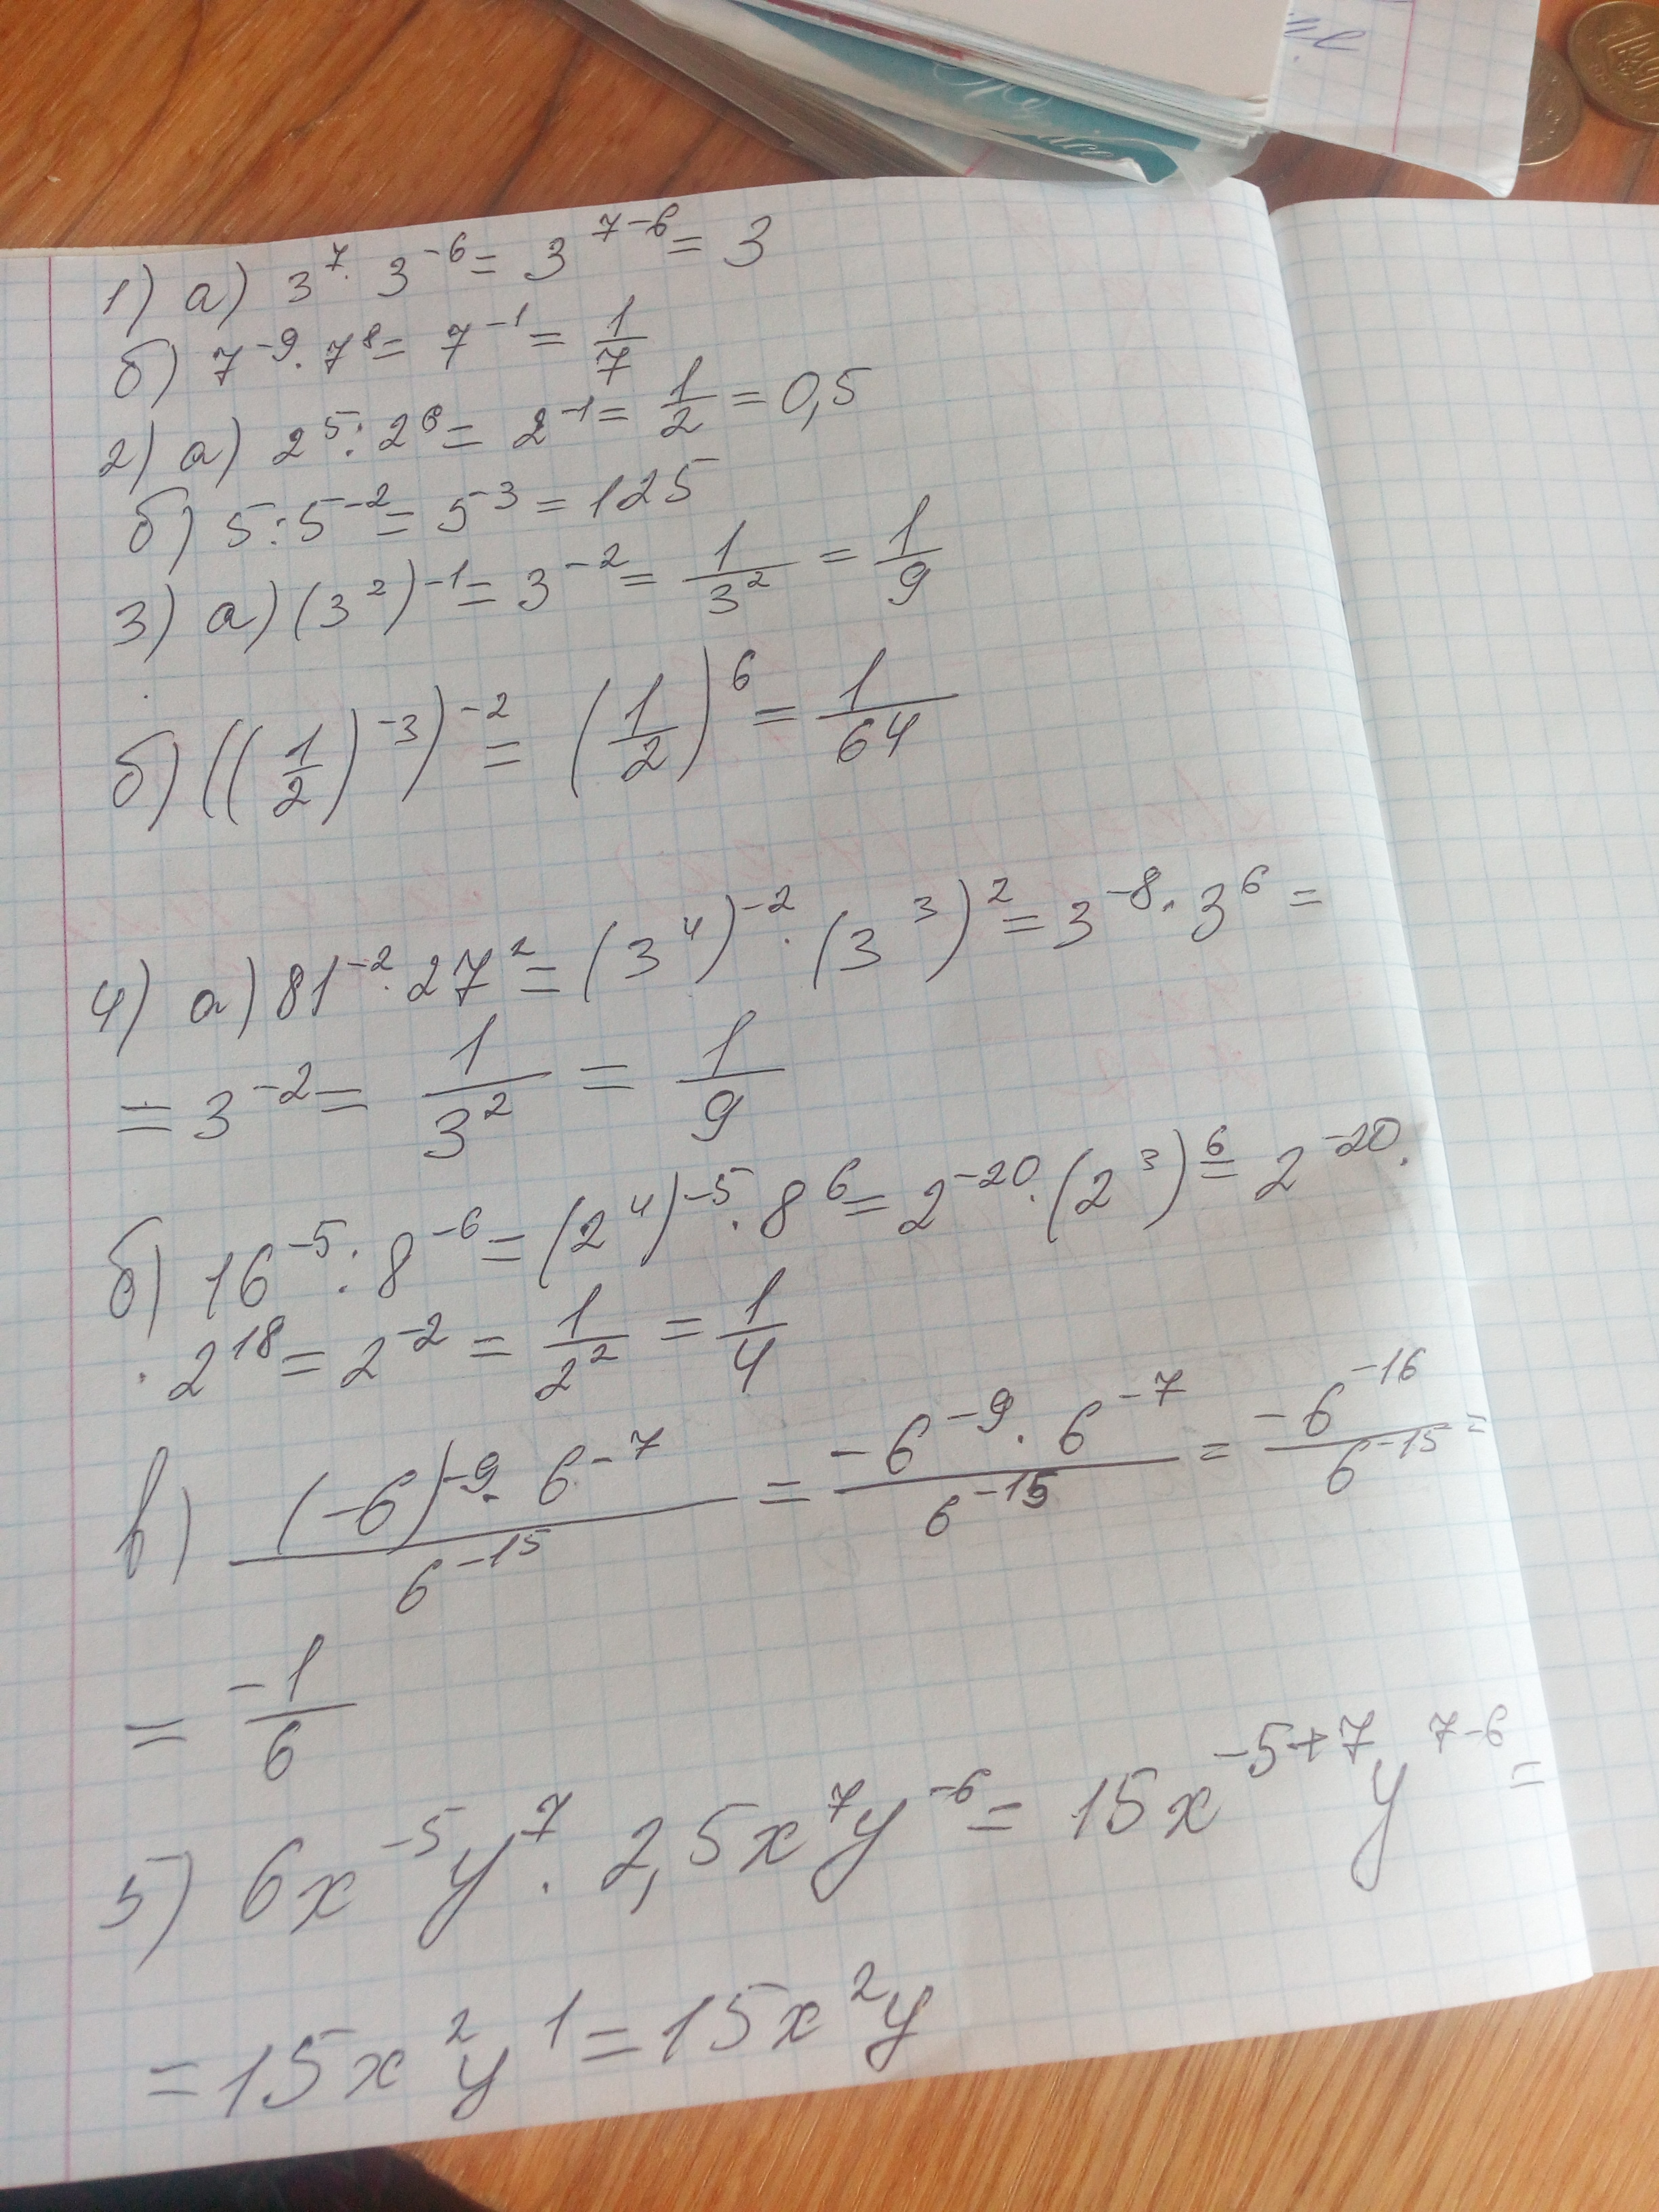 1) а) 3⁷ · 3⁻⁶ = 3⁷⁻⁶ = 3
б) 7⁻⁹ · 7⁸ = 7⁻¹ = 1/7
2) а) 2⁵ : 2⁶ = 2⁻¹ = 1/2 = 0,5
б) 5 : 5⁻² = 5³ = 125
3) а) (3²)⁻¹ = 3⁻² = 1/3² = 1/9
б) ((1/2)⁻³)⁻² = (1/2)⁶ = 1/64
4) а) 81⁻² · 27² = (3⁴)⁻² · (3³)² = 3⁻⁸ · 3⁶ =
= 3⁻² = 1/3² = 1/9
б) 16⁻⁵ : 8⁻⁶ = (2⁴)⁻⁵ · 8⁶ = 2⁻²⁰ · (2³)⁶ = 2⁻²⁰ ·
· 2¹⁸ = 2⁻² = 1/2² = 1/4
в) (-6)⁻⁹ · 6⁻⁷ / 6⁻¹⁵ = -6⁻⁹ · 6⁻⁷ / 6⁻¹⁵ = -6⁻¹⁶ / 6⁻¹⁵ =
= -1/6
5) 6x⁻⁵y⁷ · 2,5x⁷y⁻⁶ = 15x⁻⁵⁺⁷y⁷⁻⁶ =
= 15x²y¹ = 15x²y